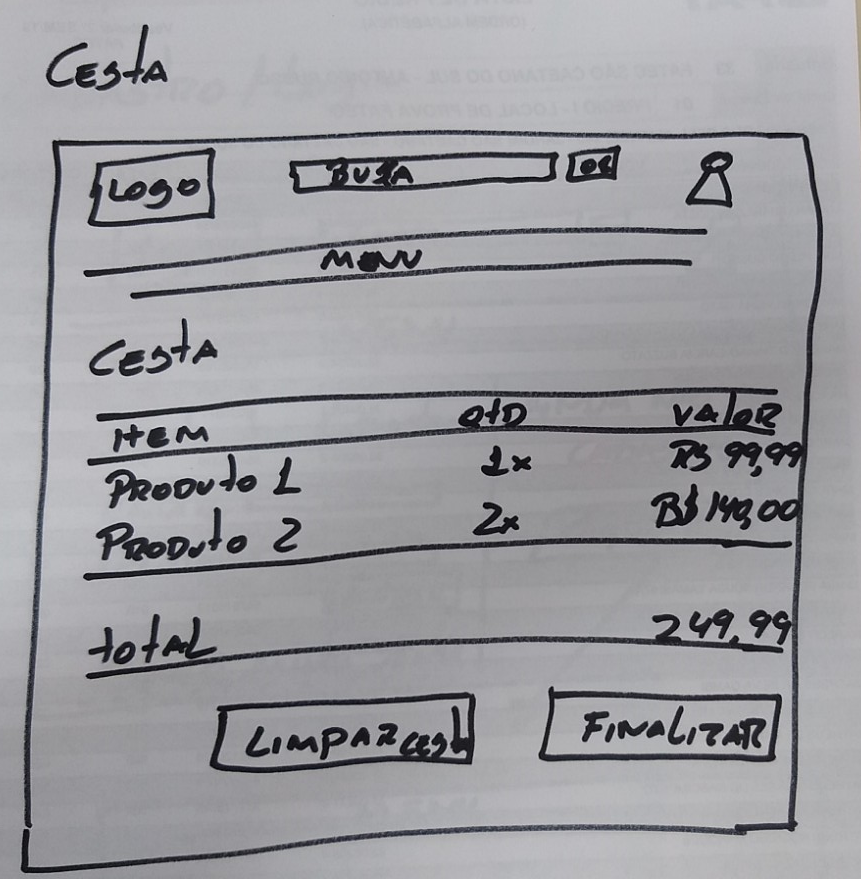 CESTA
LOGO BUSCA OK
MENU
CESTA
ITEM QTD VALOR
PRODUTO 1 1x R$ 99,99
PRODUTO 2 2x R$ 140,00
TOTAL 249,99
LIMPAR CESTA FINALIZAR